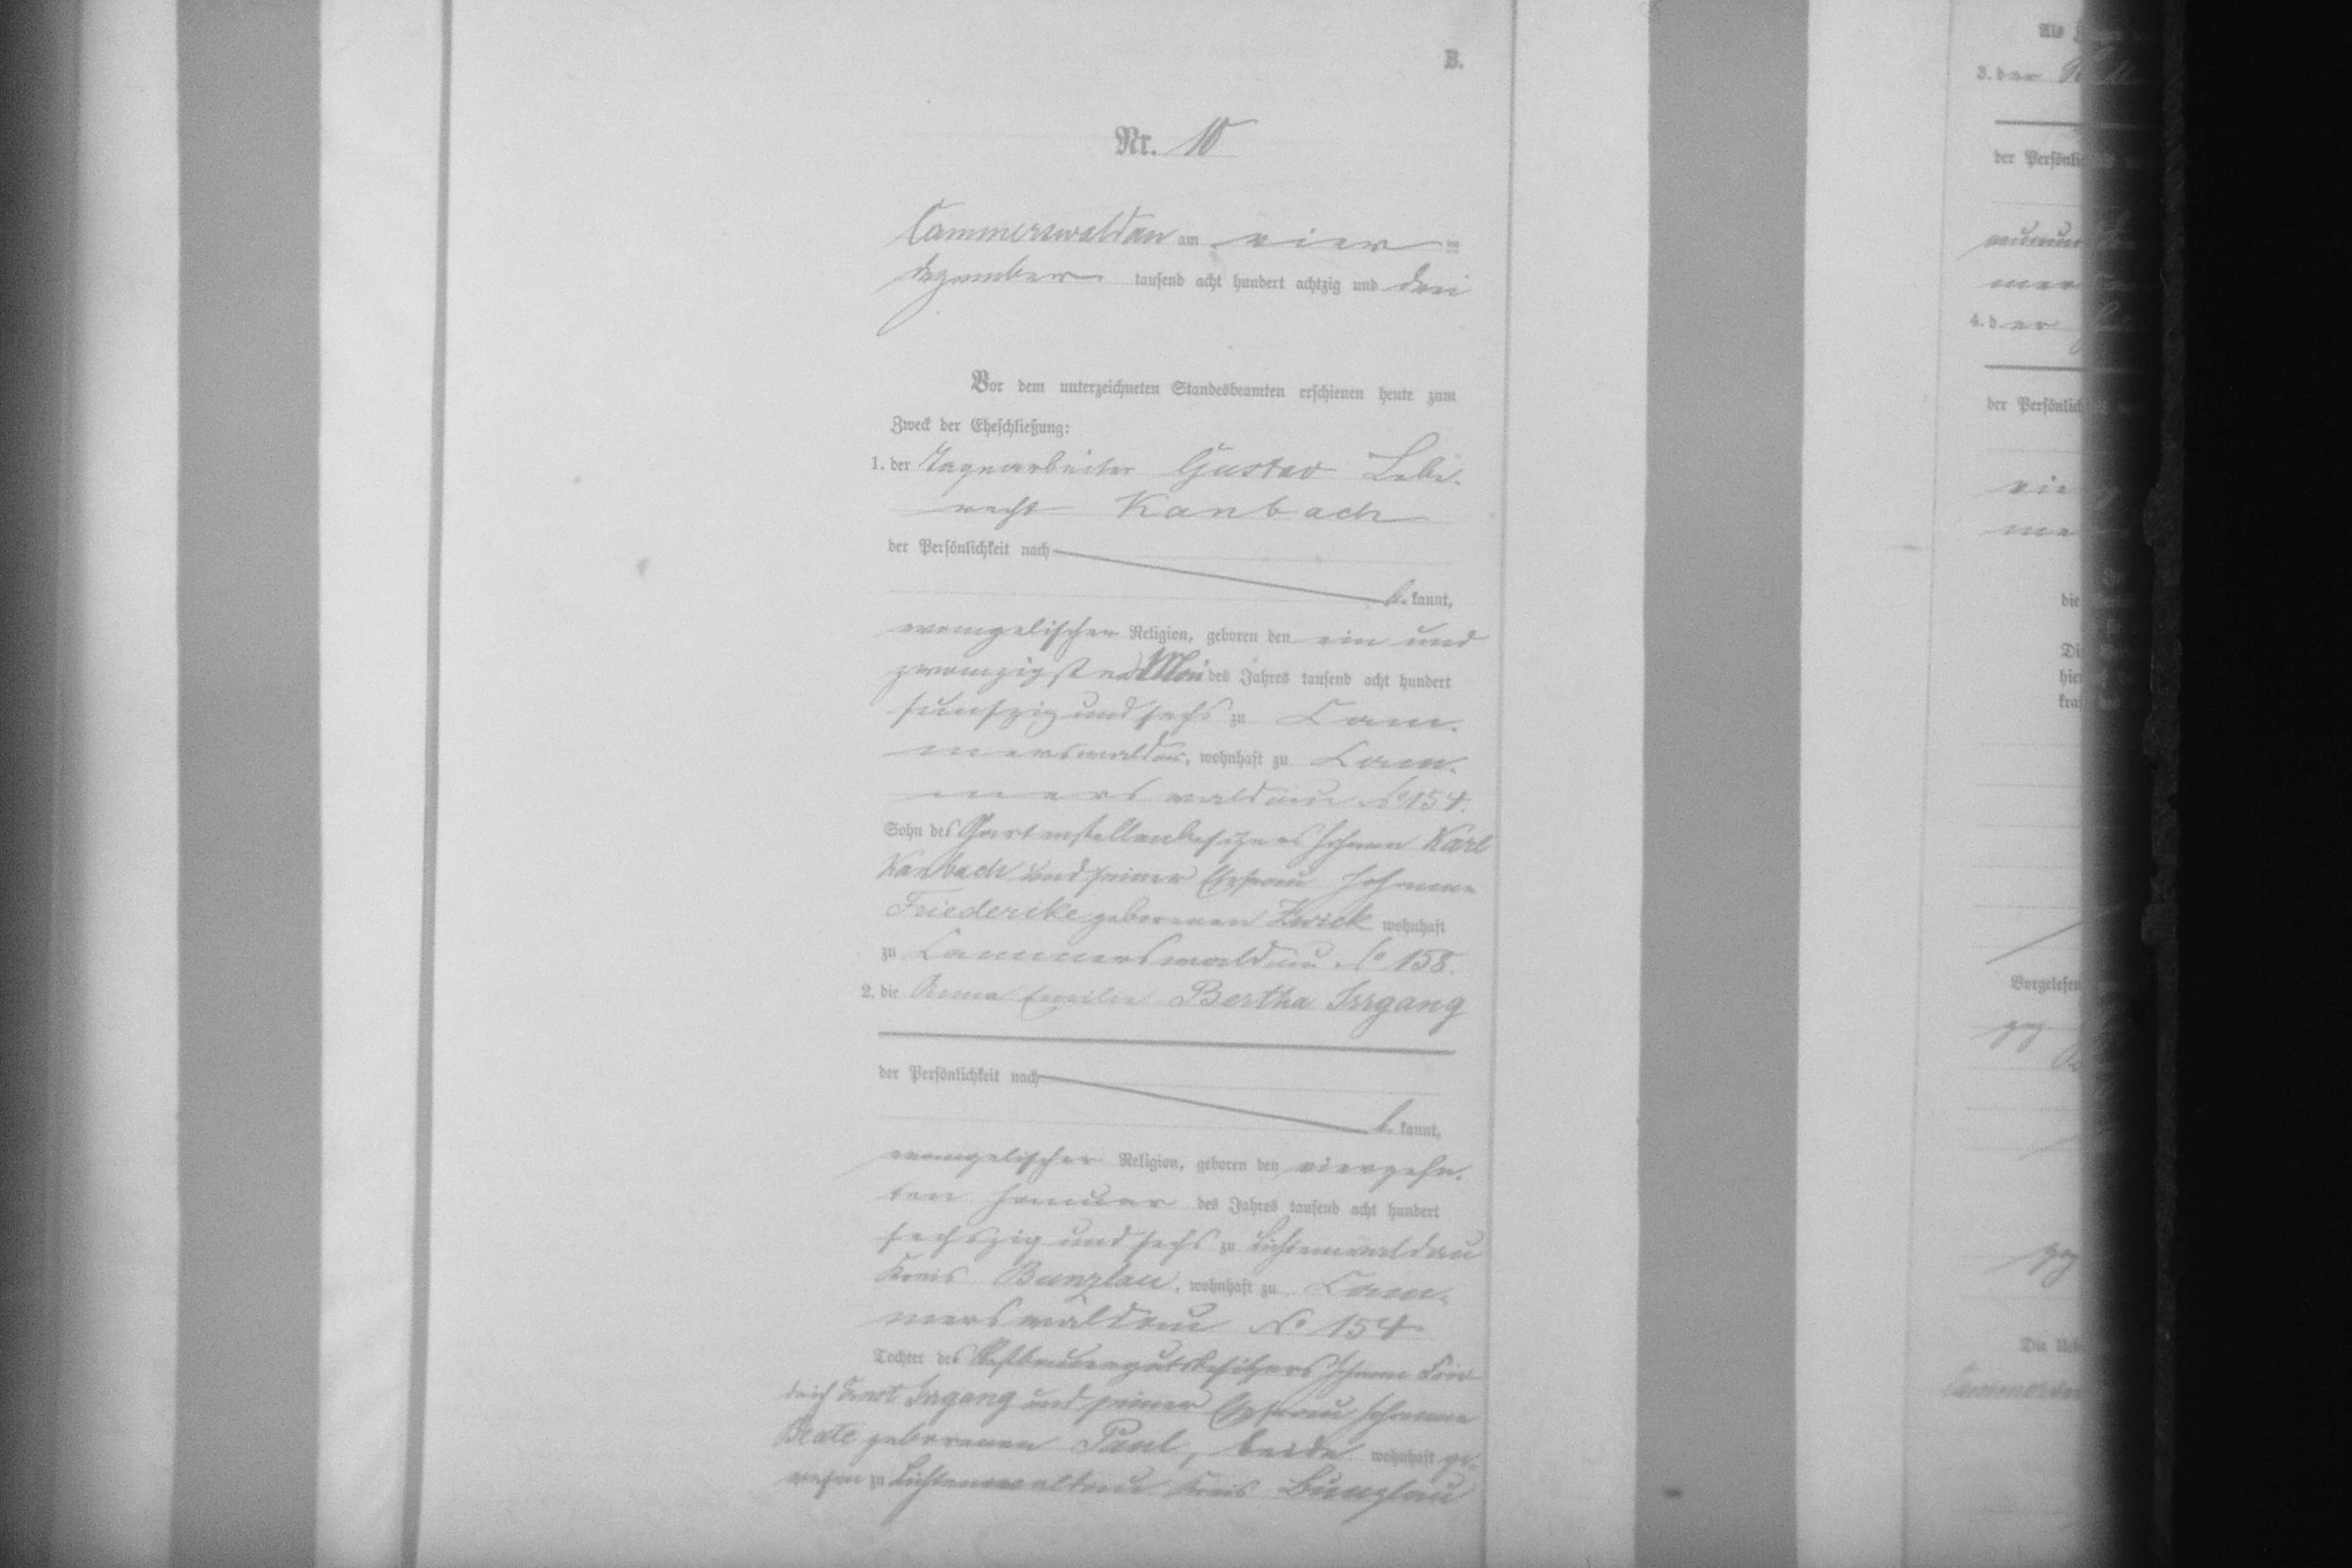 B.
Nr. 10
Cammerswaldau am vier ten
Dezember tausend acht hundert achtzig und drei
Vor dem unterzeichneten Standesbeamten erschienen heute zum
Zweck der Eheschließung:
1. der Tagearbeiter Gustav Lebe-
recht Kanbach
der Persönlichkeit nach
be kannt,
evangelischer Religion, geboren den ein und
zwanzigsten Mai des Jahres tausend acht hundert
fünfzig und sechs zu Cam-
merswaldau, wohnhaft zu Cam-
merswaldau No 154.
Sohn des Gartenstellenbesitzers Johann Karl
Kanbach und seiner Ehefrau Johanne
Friederike geborenen Zwick wohnhaft
zu Cammerswaldau No 158.
2. die Anna Emilie Bertha Irrgang
der Persönlichkeit nach
be kannt,
evangelischer Religion, geboren den vierzehn-
ten Januar des Jahres tausend acht hundert
sechszig und sechs zu Lichtenwaldau
Kreis Bunzlau, wohnhaft zu Cam-
merswaldau No 154
Tochter des Restbauergutsbesitzers Johann Frie-
drich Ernst Irrgang und seiner Ehefrau Johanne
Beate geborenen Paul, beide wohnhaft ge-
wesen zu Lichtenwaldau Kreis Bunzlau
Als
3. der
der Persönlich
mer
4. der
der Persönlich
vier
die
Die
hier
kraft
Vorgelesen
gez
gez
Die Ueb
Cammersw